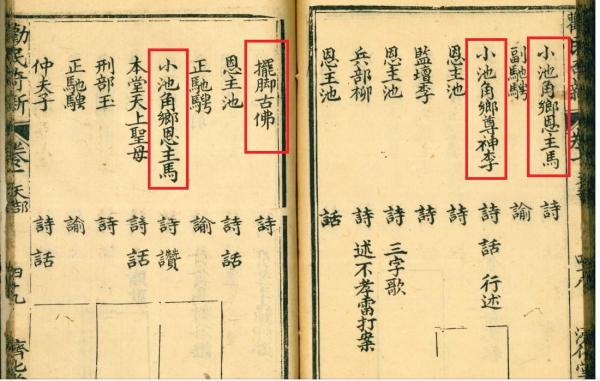 小池角鄉恩主馬 詩
副馳騁 諭
小池角鄉尊神李 詩 話 行述
恩主池 詩
監壇李 詩
恩主池 詩 三字歌
兵部柳 詩 述不孝雷打案
恩主池 話
擺脚古佛 詩
恩主池 詩 話
正馳騁 諭
小池角鄉恩主馬 詩 讚
本堂天上聖母 詩 話
刑部玉 詩
正馳騁 諭
仲夫子 詩 話
民奇新 卷一 天部 四十九 濟化